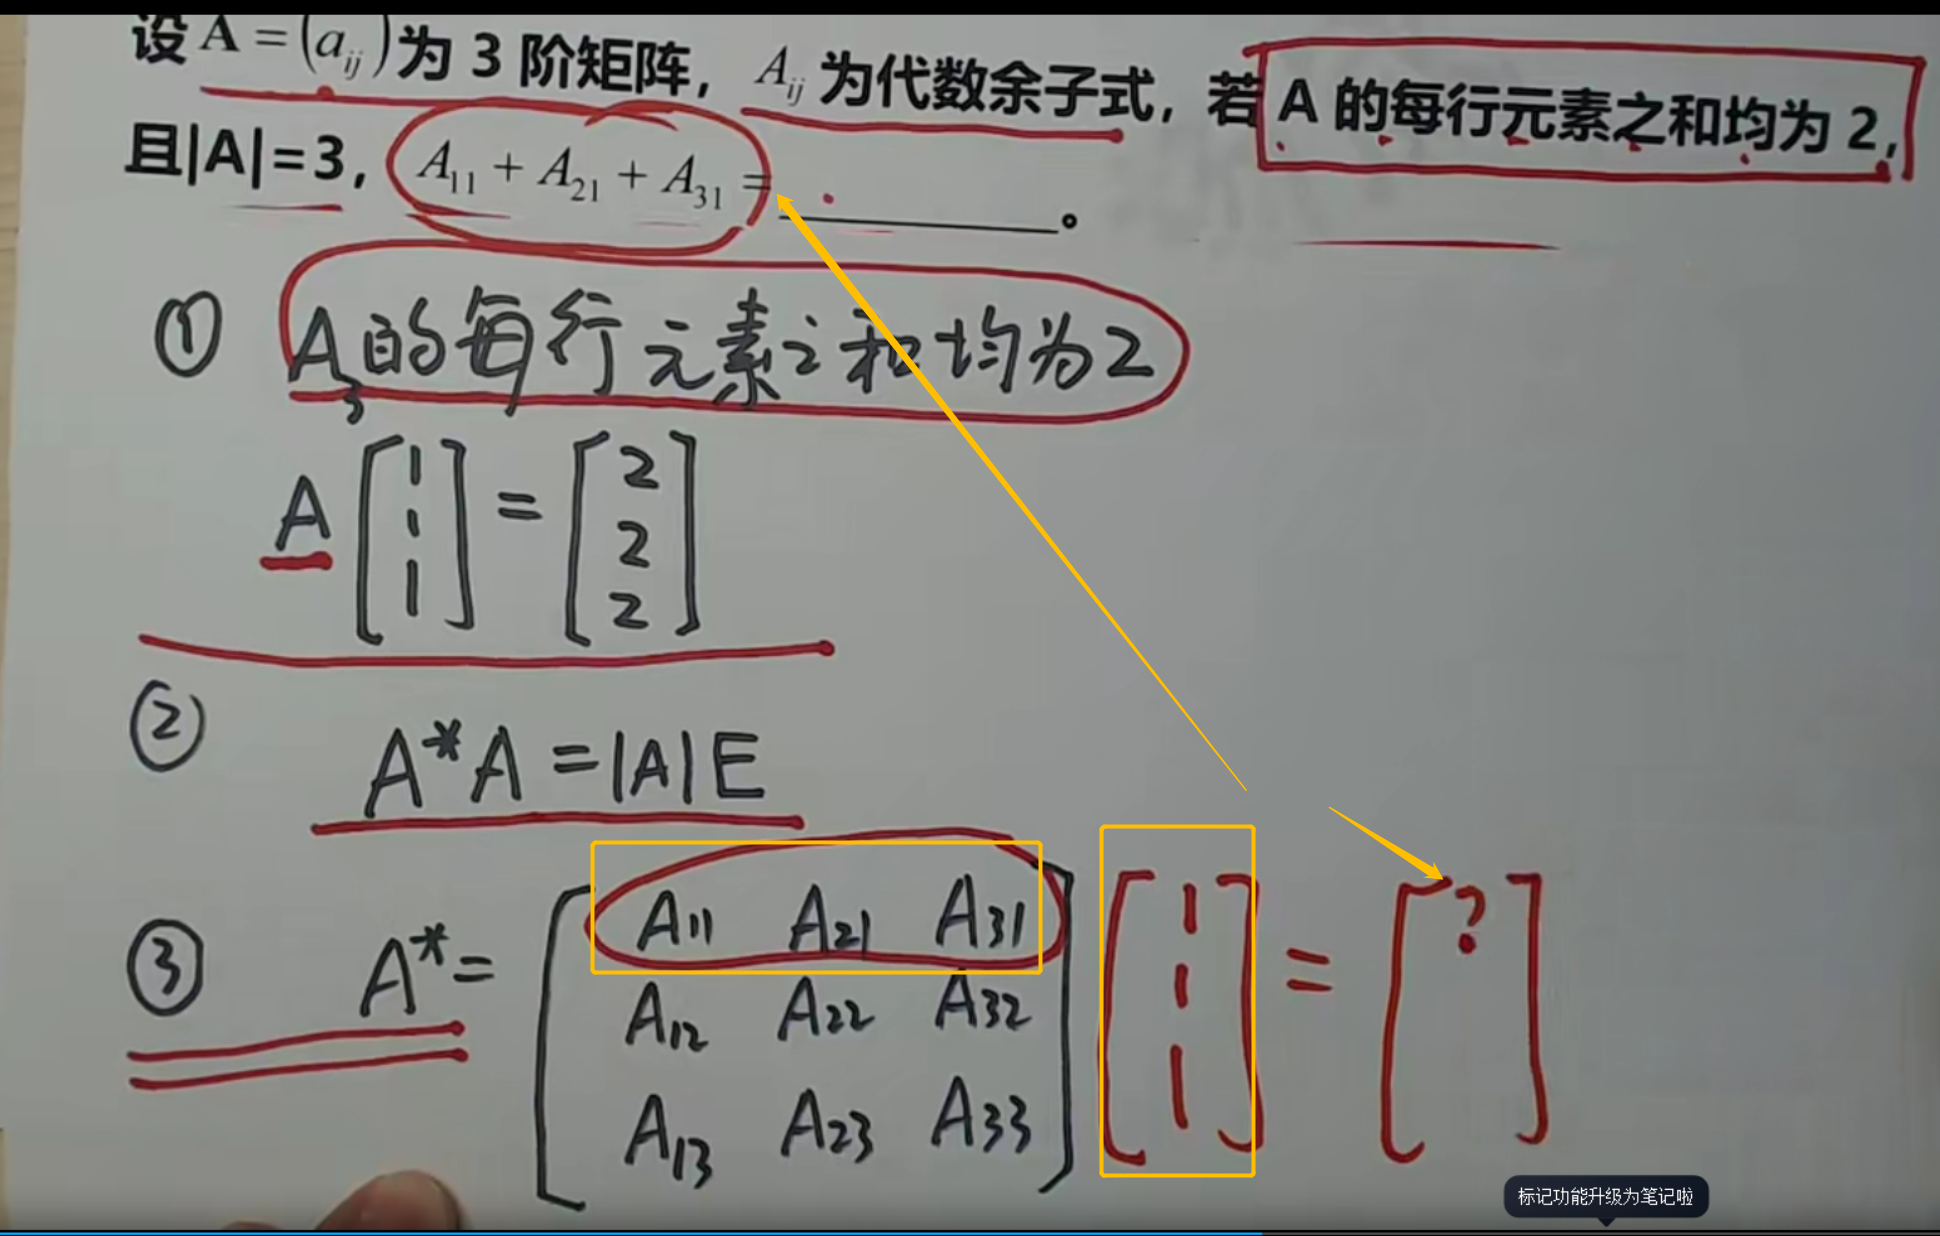 设 A = (a_ij) 为 3 阶矩阵，A_ij 为代数余子式，若 A 的每行元素之和均为 2，
且|A|=3，A_11 + A_21 + A_31 = ________。
① A的每行元素之和均为2
3
A [1 1 1] = [2 2 2]
② A*A = |A|E
③ A* = [A11 A21 A31 [1 = [?
A12 A22 A32 1
A13 A23 A33] 1] ]
标记功能升级为笔记啦